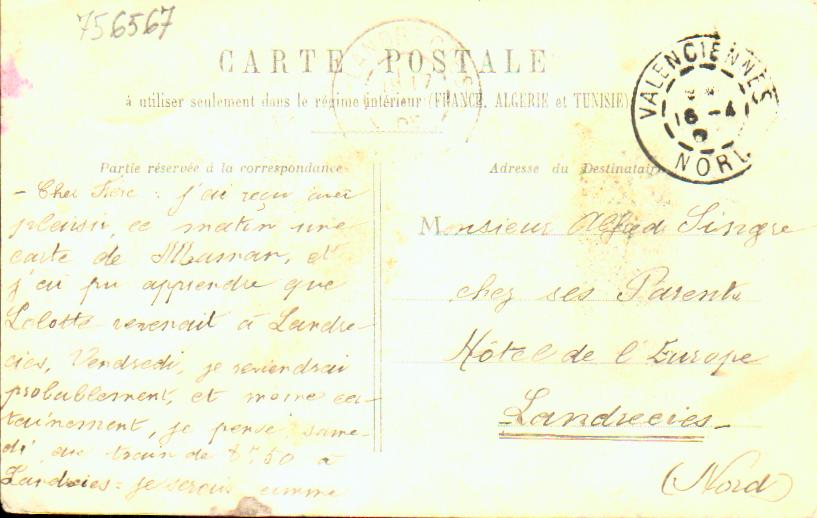 756567
CARTE POSTALE
à utiliser seulement dans le régime intérieur (FRANCE, ALGERIE et TUNISIE)
VALENCIENNES
16 - 4
NORD
Partie réservée à la correspondance
Adresse du Destinataire
- Cher Frère : j'ai reçu avec
plaisir, ce matin une
carte de Maman, et
j'ai pu apprendre que
Lolotte revenait à Landre-
cies, Vendredi, je reviendrai
probablement, et même cer-
tainement, je pense, same-
di au train de 8h,50 à
Landrecies = je serais comme
Monsieur Alfred
chez ses Parents
Hôtel de l'Europe
Landrecies -
(Nord)